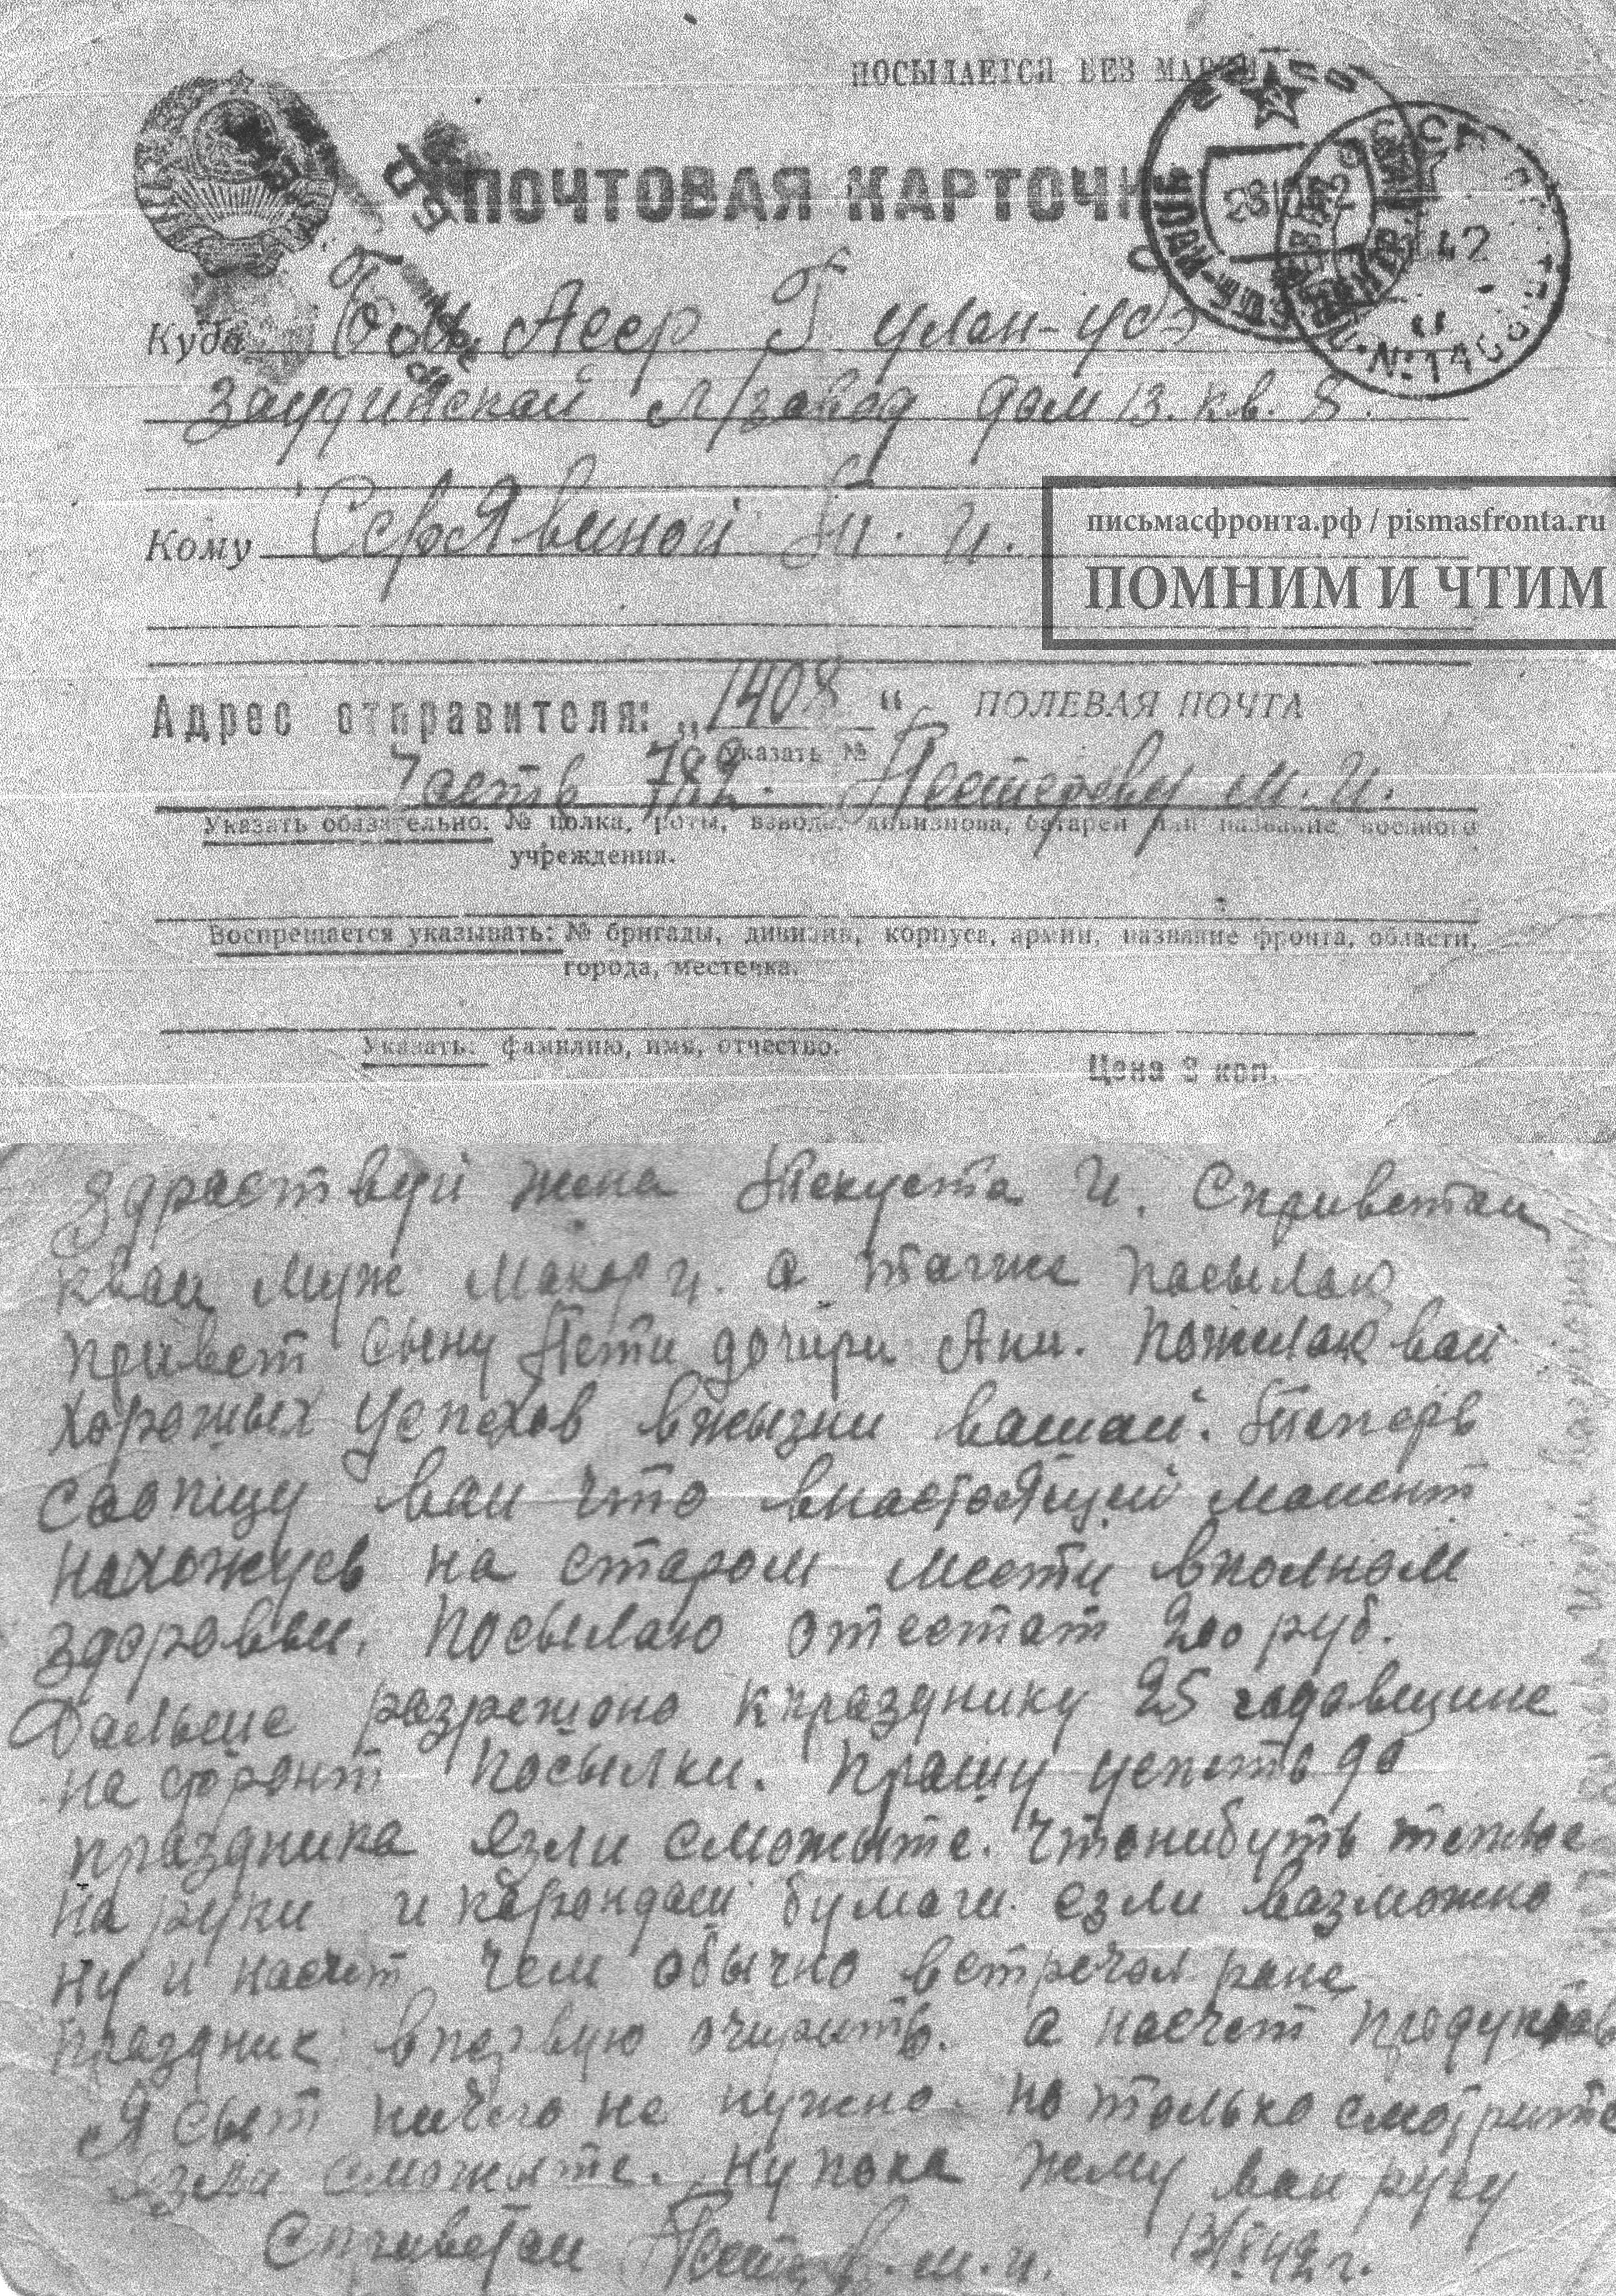 ПОСЫЛАЕТСЯ БЕЗ МАРКИ
ПОЧТОВАЯ КАРТОЧКА
Куда Бом Асср Г улан-удэ
Заудинской м/завод дом 13. кв. 8.
Кому Серявиной Т. И.
письмасфронта.рф / pismasfronta.ru
ПОМНИМ И ЧТИМ
Адрес отправителя: „1408“ ПОЛЕВАЯ ПОЧТА
указать №
Часть 782. Пестереву М. И.
Указать обязательно: № полка, роты, взвода, дивизиона, батареи или название военного
учреждения.
Воспрещается указывать: № бригады, дивизии, корпуса, армии, название фронта, области,
города, местечка.
Указать: фамилию, имя, отчество.
Цена 3 коп.
Здраствуй жена Текуста И. Сприветам
квам Муж Макар И. а также пасылаю
привет сыну Пети дочири Ани. Пожилаю вам
хорошых успехов вжызни вашай. Теперь
саопщу вам что внастоящий мамент
нахожусь на старом мести вполном
здоровьи. Посылаю отестат 200 руб.
Дальше разрешоно кпразднику 25 гадавщине
на фронт посылки. Прашу успеть до
праздника езли сможыте. Чтонибуть теплое
на руки и карондаш бумаги. езли вазможно
ну и насчет чем обычно встречал ране
праздник. впервую очирить. а насчет продуктав
Я сыт ничего не нужно. но только смотрите
езли сможыте. Ну пока жму вам руку
Сприветам Пестерев. м. и. 13/X 42 г.